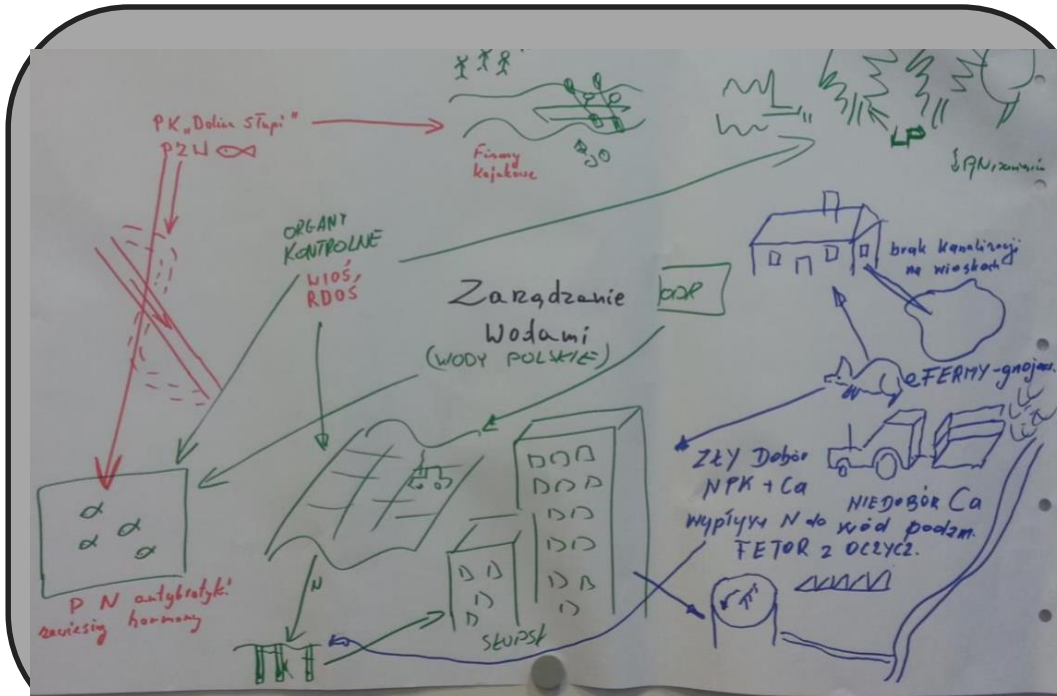 PK „Dolina Słupi"
PZW
Firmy
kajakowe
LP
ORGANY
KONTROLNE
WIOŚ,
RDOŚ
Zarządzanie
Wodami
(WODY POLSKIE)
ODR
brak kanalizacji
na wioskach
FERMY-gnojow.
ZŁY Dobór
NPK + Ca
NIEDOBÓR Ca
wypływ N do wód podzm.
FETOR z OCZYC.
P N antybiotyki
zawiesiny hormony
N
SŁUPSK